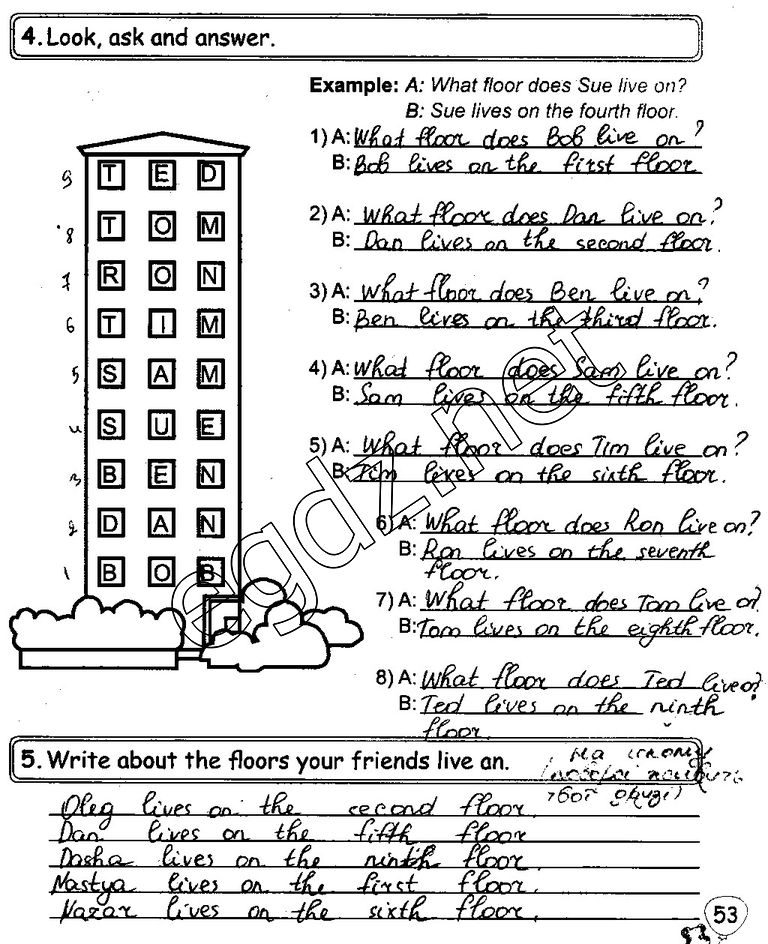 4. Look, ask and answer.
Example: A: What floor does Sue live on?
B: Sue lives on the fourth floor.
1) A: What floor does Bob live on?
B: Bob lives on the first floor
2) A: What floor does Dan live on?
B: Dan lives on the second floor.
3) A: What floor does Ben live on?
B: Ben lives on the third floor.
4) A: What floor does Sam live on?
B: Sam lives on the fifth floor.
5) A: What floor does Tim live on?
B: Tim lives on the sixth floor.
6) A: What floor does Ron live on?
B: Ron lives on the seventh
floor.
7) A: What floor does Tom live on?
B: Tom lives on the eighth floor.
8) A: What floor does Ted live on?
B: Ted lives on the ninth
floor.
9 T E D
8 T O M
7 R O N
6 T I M
5 S A M
4 S U E
3 B E N
2 D A N
1 B O B
egdz.net
5. Write about the floors your friends live an.
На якому
твої друзі)
Oleg lives on the second floor.
Dan lives on the fifth floor
Dasha lives on the ninth floor.
Nastya lives on the first floor.
Nazar lives on the sixth floor.
53
53